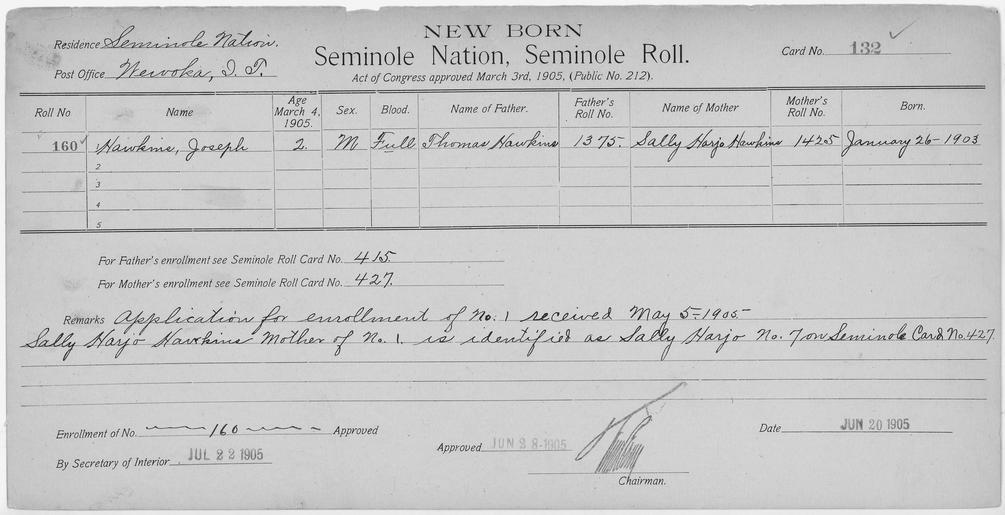 NEW BORN
Residence Seminole Nation.
Seminole Nation, Seminole Roll.
Card No. 132
Post Office Wewoka, I. T.
Act of Congress approved March 3rd, 1905, (Public No. 212).
Roll No Name Age March 4, 1905. Sex. Blood. Name of Father. Father's Roll No. Name of Mother Mother's Roll No. Born.
160 1 Hawkins, Joseph 2 M Full Thomas Hawkins 1375- Sally Harjo Hawkins 1425 January 26-1903
2
3
4
5
For Father's enrollment see Seminole Roll Card No. 415.
For Mother's enrollment see Seminole Roll Card No. 427.
Remarks Application for enrollment of No. 1 received May 5-1905-
Sally Harjo Hawkins Mother of No. 1. is identified as Sally Harjo No. 7 on Seminole Card No. 427.
Enrollment of No. 160 Approved
Approved JUN 28-1905
Date JUN 20 1905
By Secretary of Interior. JUL 22 1905
Chairman.